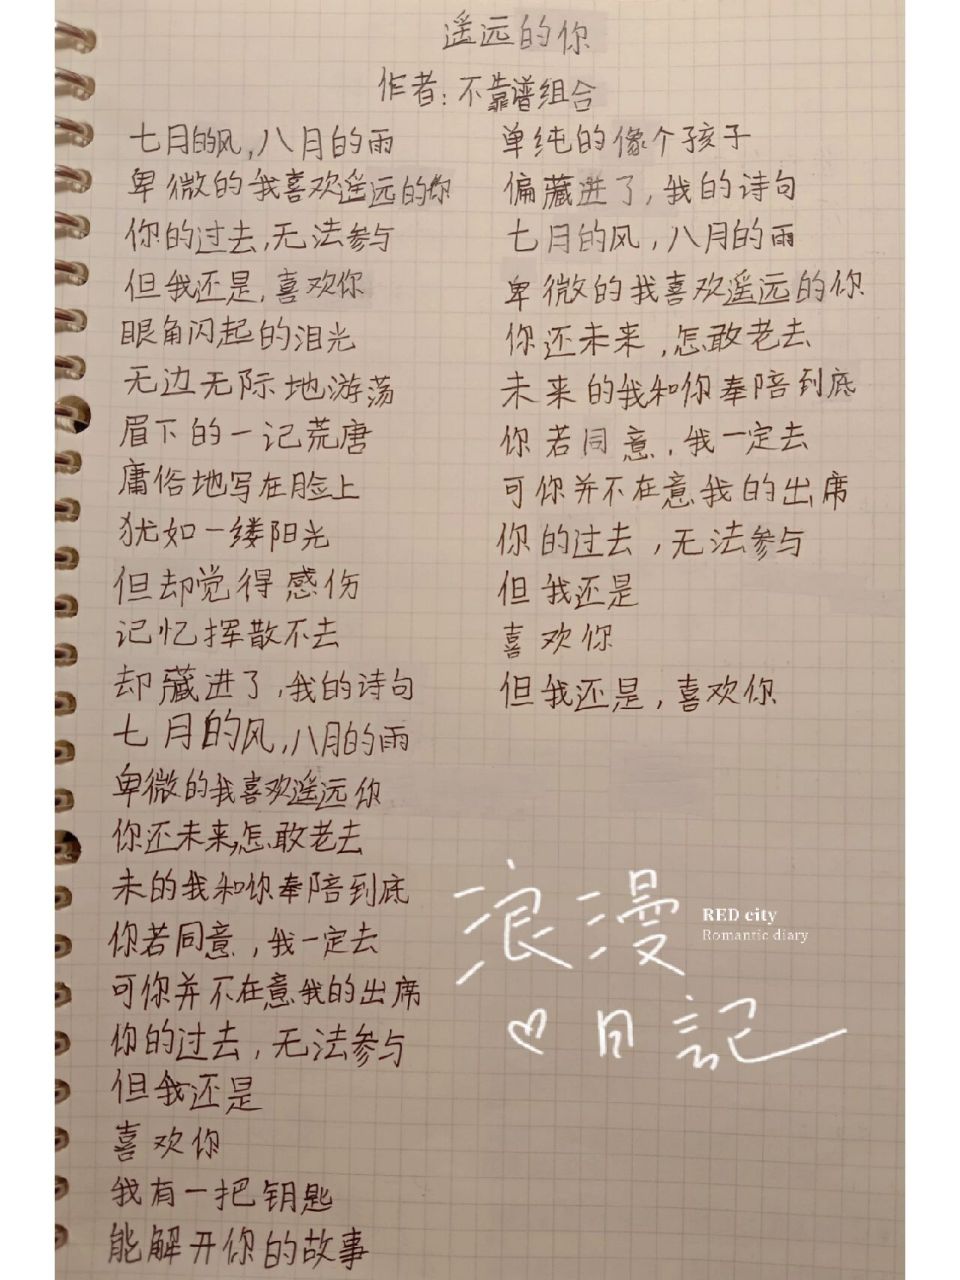 遥远的你
作者:不靠谱组合
七月的风,八月的雨
卑微的我喜欢遥远的你
你的过去,无法参与
但我还是,喜欢你
眼角闪起的泪光
无边无际地游荡
眉下的一记荒唐
庸俗地写在脸上
犹如一缕阳光
但却觉得感伤
记忆挥散不去
却藏进了,我的诗句
七月的风,八月的雨
卑微的我喜欢遥远你
你还未来,怎敢老去
未的我和你奉陪到底
你若同意,我一定去
可你并不在意我的出席
你的过去,无法参与
但我还是
喜欢你
我有一把钥匙
能解开你的故事
单纯的像个孩子
偏藏进了,我的诗句
七月的风,八月的雨
卑微的我喜欢遥远的你
你还未来,怎敢老去
未来的我和你奉陪到底
你若同意,我一定去
可你并不在意我的出席
你的过去,无法参与
但我还是
喜欢你
但我还是,喜欢你
浪漫
RED city
Romantic diary
日記